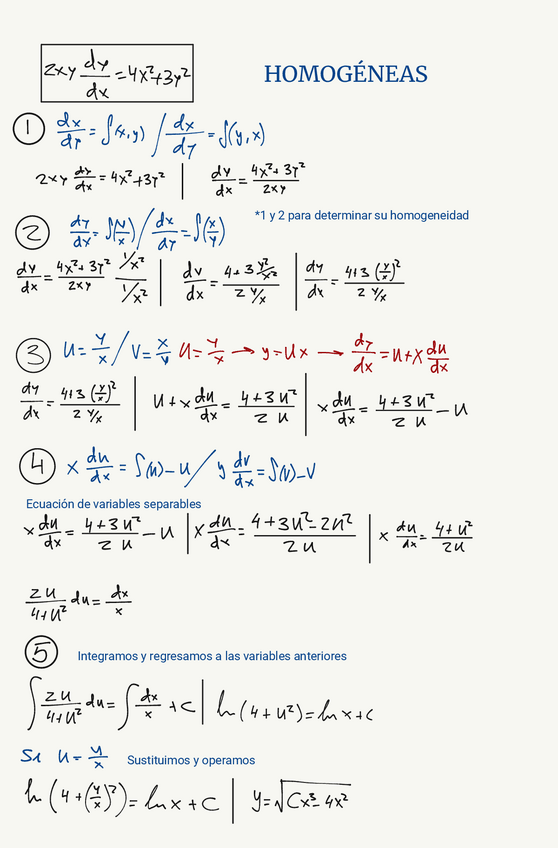 2xy dy/dx = 4x²+3y²
HOMOGÉNEAS
1 dx/dy = f(x,y) / dx/dy = f(y,x)
2xy dy/dx = 4x²+3y² | dy/dx = 4x²+3y²/2xy
*1 y 2 para determinar su homogeneidad
2 dy/dx = f(y/x) / dx/dy = f(x/y)
dy/dx = 4x²+3y²/2xy 1/x²/1/x² | dy/dx = 4+3 y²/x²/2 y/x | dy/dx = 4+3 (y/x)²/2 y/x
3 u = y/x / v = x/y u = y/x → y=ux → dy/dx = u+x du/dx
dy/dx = 4+3 (y/x)²/2 y/x | u+x du/dx = 4+3u²/2u | x du/dx = 4+3u²/2u - u
4 x du/dx = f(u)-u / y dv/dx = f(v)-v
Ecuación de variables separables
x du/dx = 4+3u²/2u - u | x du/dx = 4+3u²-2u²/2u | x du/dx = 4+u²/2u
2u/4+u² du = dx/x
5 Integramos y regresamos a las variables anteriores
∫ 2u/4+u² du = ∫ dx/x + c | ln(4+u²)=ln x+c
Si u = y/x Sustituimos y operamos
ln(4+(y/x)²) = ln x + c | y=√Cx³-4x²